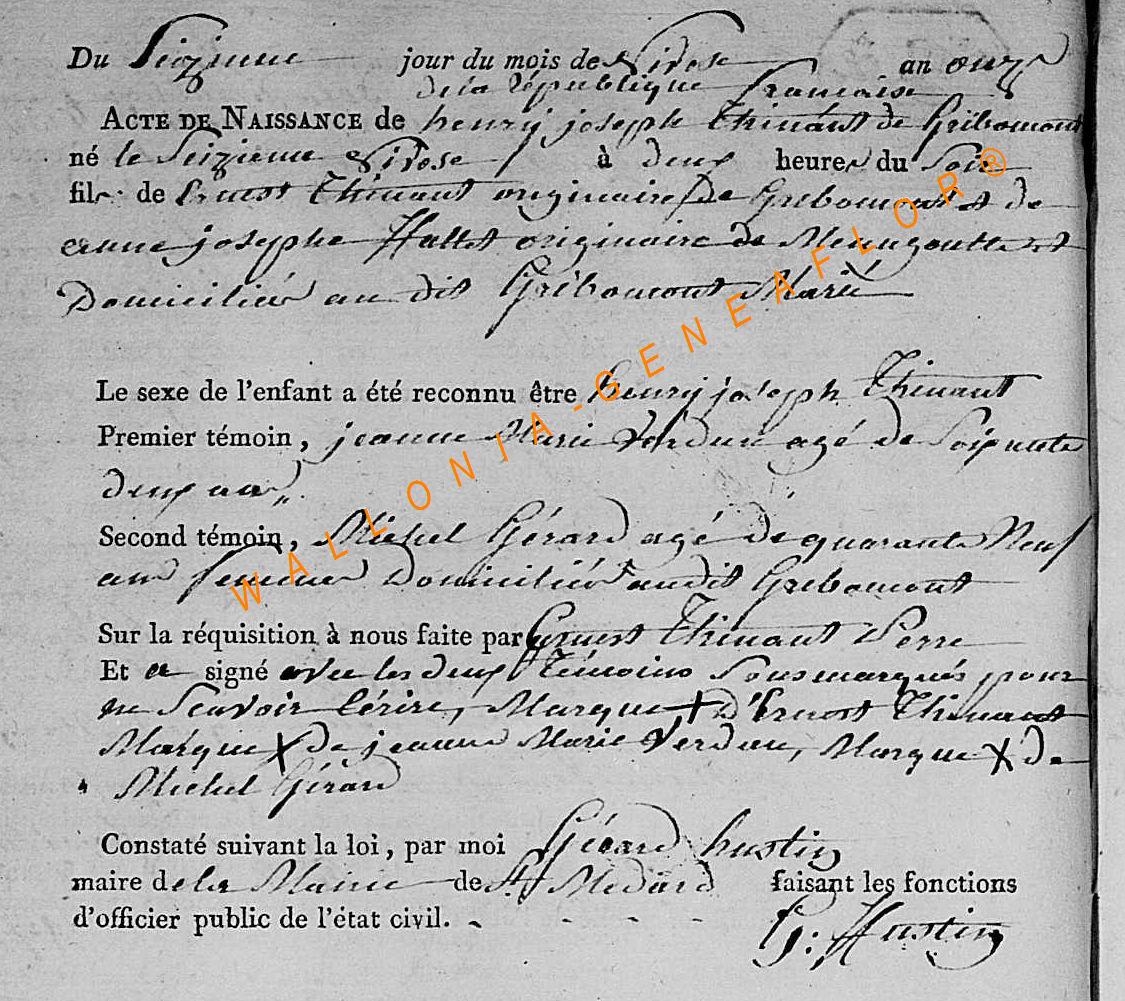 Du Seizieme jour du mois de Nivose an onze
de la république francaise
ACTE DE NAISSANCE de henry joseph Thinant de Gribomont
né le Seizieme Nivose à deux heures du Soir
fils de Ernest Thinant originaire de Gribomont et de
anne josephe Hallet originaire de Menugoutte et
Domiciliés au dit Gribomont Marié
Le sexe de l'enfant a été reconnu être henry joseph Thinant
Premier témoin, jeanne Marie Verdun agé de Soixante
deux ans
Second témoin, Michel Gérard agé de quarante Neuf
ans Domiciliés audit Gribomont
Sur la réquisition à nous faite par Ernest Thinant Perre
Et a signé avec les deux Témoins Sousmarqués pour
ne Scavoir Lérire, Marque X d'Ernest Thinant
Marque X de jeanne Marie Verdun, Marque X de
Michel Gérard
Constaté suivant la loi, par moi Gérard hustin
maire de la Mairie de St Médard faisant les fonctions
d'officier public de l'état civil.
G: Hustin
WALLONIA-GENEAFLOR®